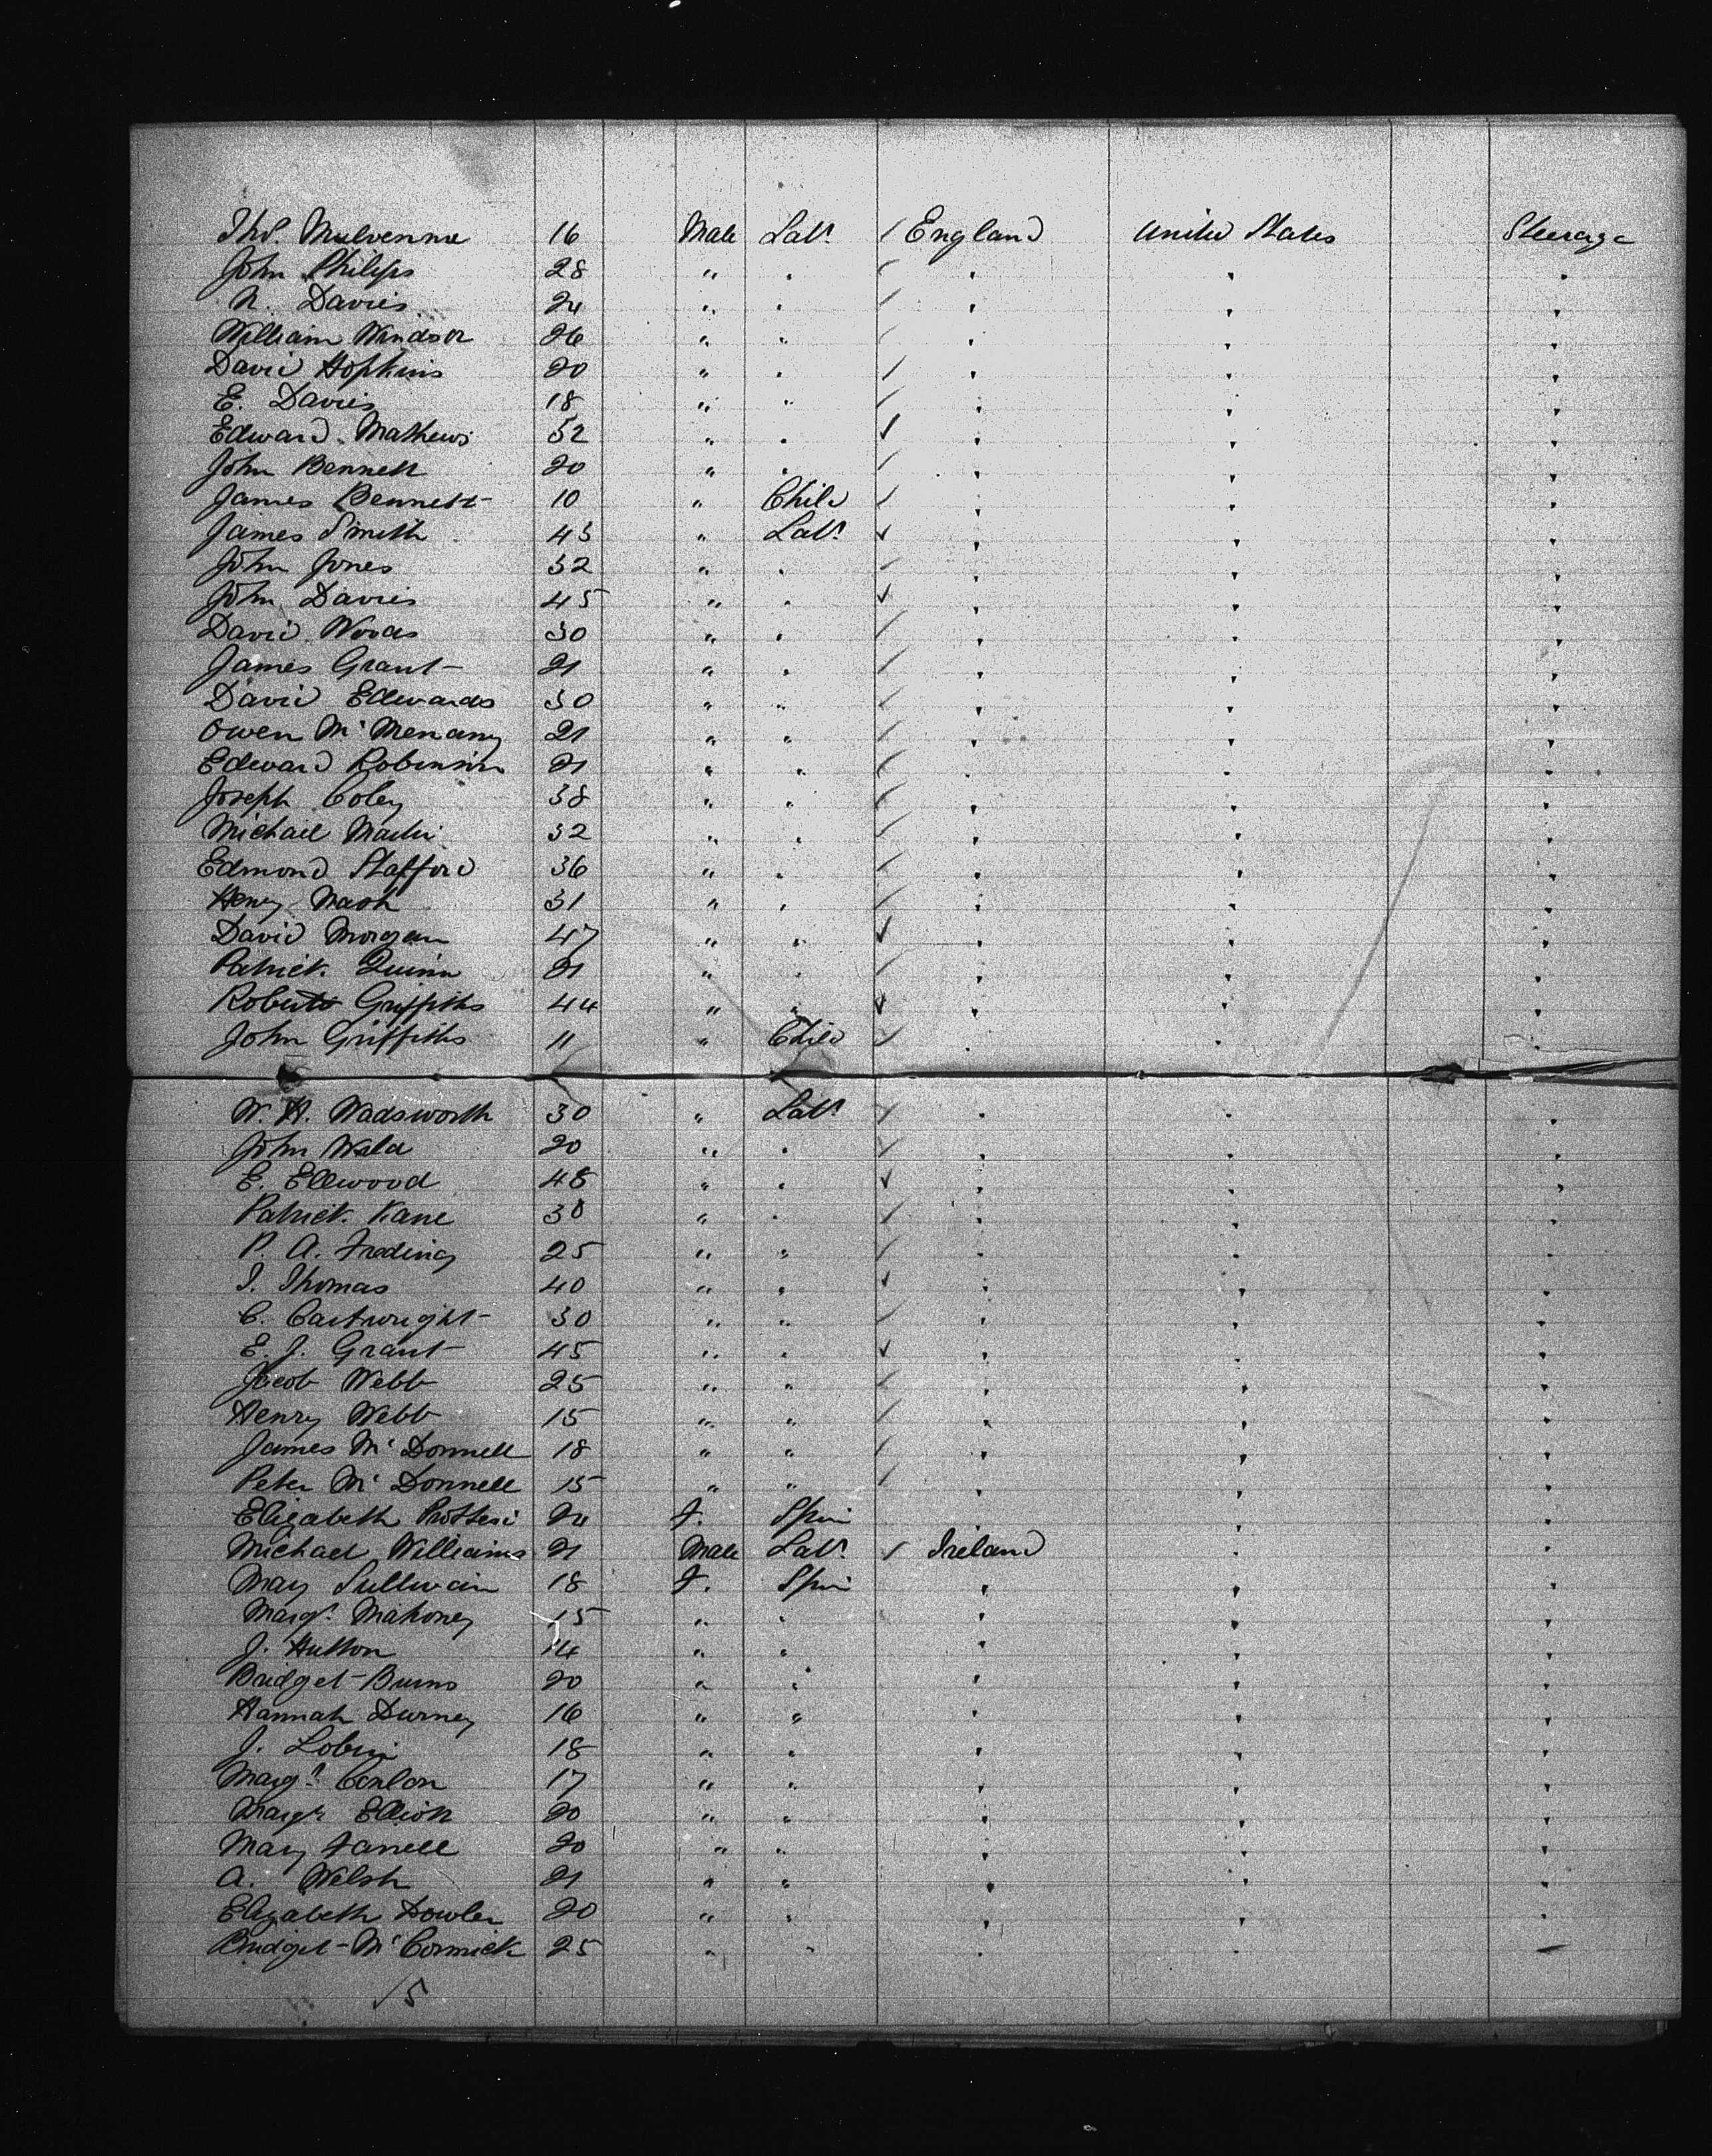 Thos. Mulvenna 16 Male Labr. / England United States Steerage
John Philips 28 " " / " " "
N. Davies 24 " " / " " "
William Windsor 26 " " / " " "
David Hopkins 20 " " / " " "
E. Davies 18 " " / " " "
Edward Mathews 52 " " ✓ " " "
John Bennett 20 " " / " " "
James Bennett 10 " Child / " " "
James Smith 43 " Labr. ✓ " " "
John Jones 32 " " / " " "
John Davies 45 " " ✓ " " "
David Woods 30 " " / " " "
James Grant 21 " " / " " "
David Edwards 30 " " / " " "
Owen McMenamy 21 " " / " " "
Edward Robinson 21 " " / " " "
Joseph Coley 38 " " / " " "
Michail 32 " " / " " "
Edmond Stafford 36 " " / " " "
Henry Nash 31 " " / " " "
David Morgan 47 " " ✓ " " "
Patrick Quinn 21 " " / " " "
Robert Griffiths 44 " " ✓ " " "
John Griffiths 11 " Child / " " "
W. H. Wadsworth 30 " Labr. / " " "
John 20 " " / " " "
E. Ellwood 48 " " ✓ " " "
Patrick Kane 30 " " / " " "
P. A. 25 " " / " " "
Thomas 40 " " ✓ " " "
C. Cartwright 30 " " / " " "
E. J. Grant 45 " " ✓ " " "
Jacob Webb 25 " " / " " "
Henry Webb 15 " " / " " "
James McDonnell 18 " " / " " "
Peter McDonnell 15 " " / " " "
Elizabeth 24 F. Spin " " "
Michael Williams 21 Male Labr. / Ireland " "
Mary Sullivan 18 F. Spin " " "
Margt. Mahoney 15 " " " " "
J. Hutton 14 " " " " "
Bridget Burns 20 " " " " "
Hannah Durney 16 " " " " "
J. 18 " " " " "
Margt. Conlon 17 " " " " "
Margt Elliott 20 " " " " "
Mary Farrell 20 " " " " "
A. Welsh 21 " " " " "
Elizabeth Dowler 20 " " " " "
Bridget McCormick 25 " " " " "
15